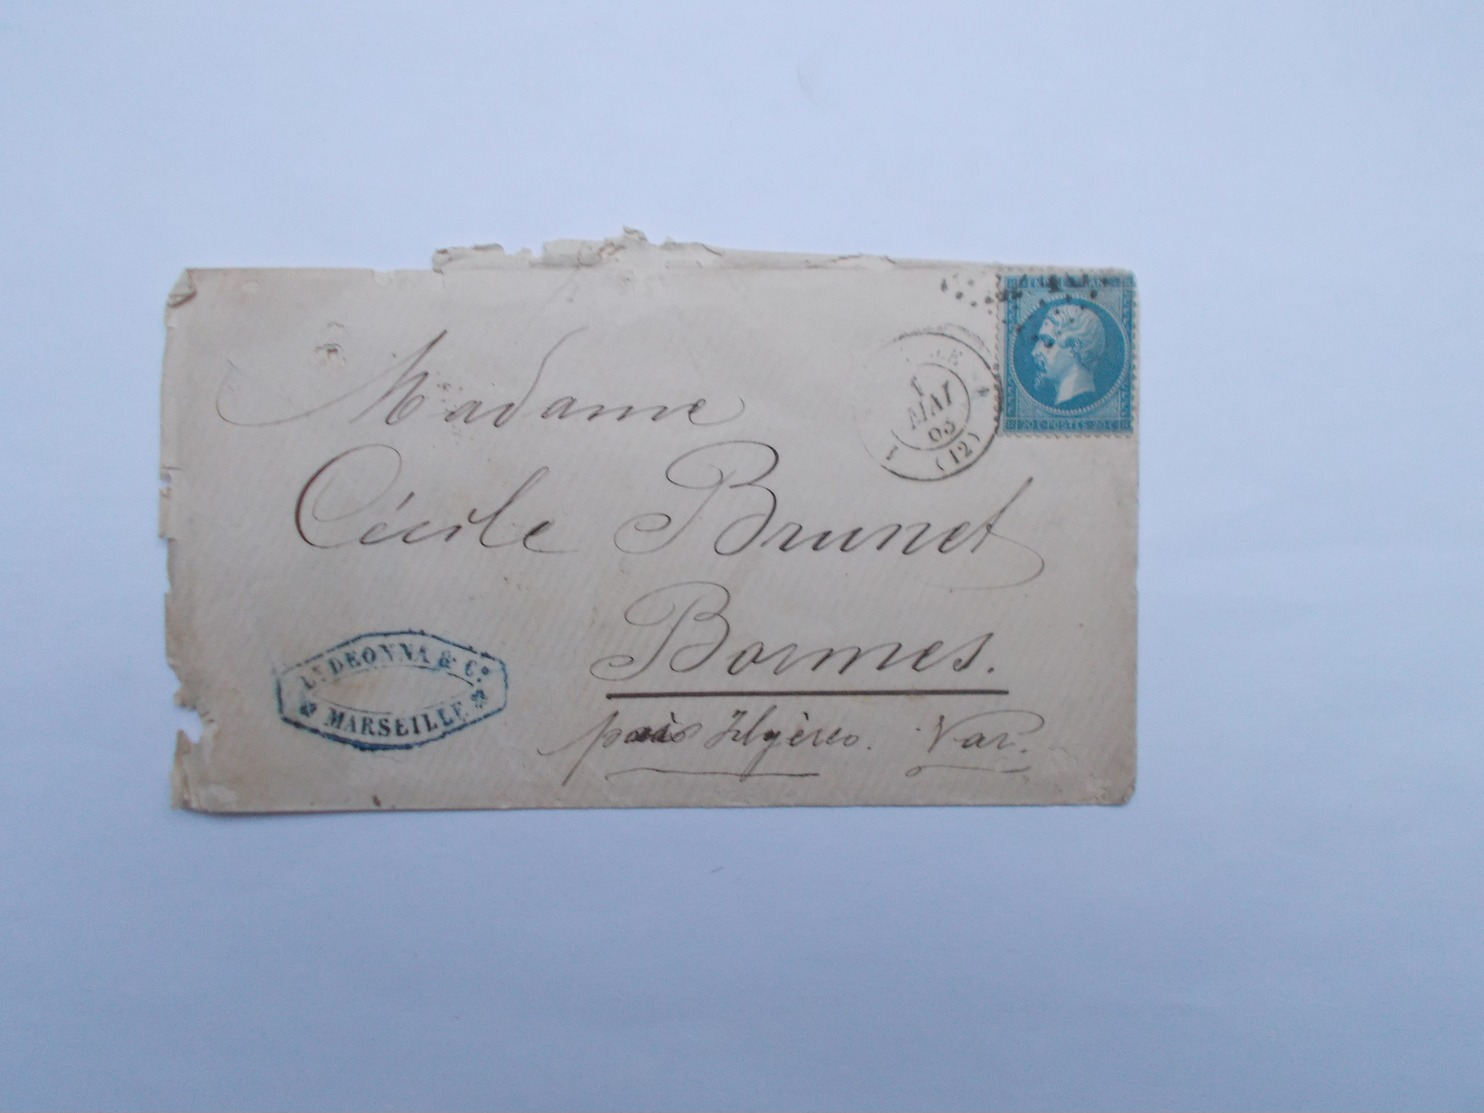 Madame
Cécile Brunet
Bormes.
près Hyères. Var.
Ls DEONNA & Co.
MARSEILLE
MAI
(12)
20 C POSTES 20 C